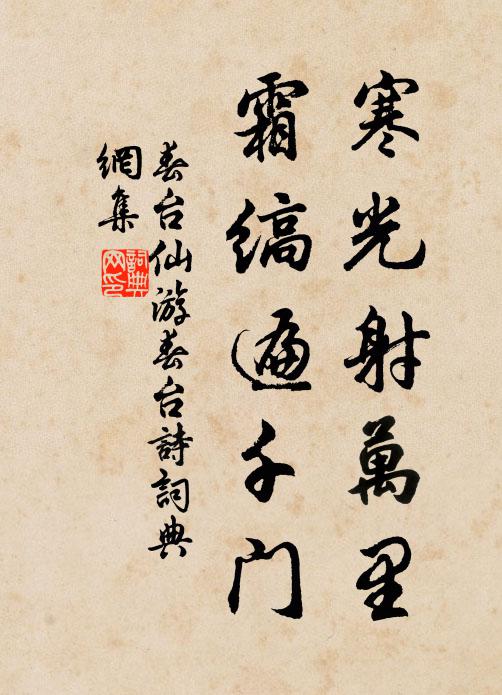 寒光射萬里
霜縞遍千門
春台仙游春台詩詞典
網集
詞典网印